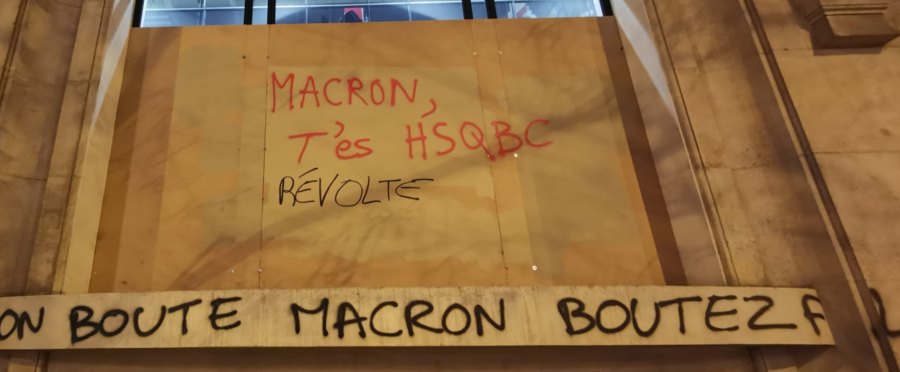 MACRON,
T'es HSQBC
RÉVOLTE
ON BOUTE MACRON BOUTEZ